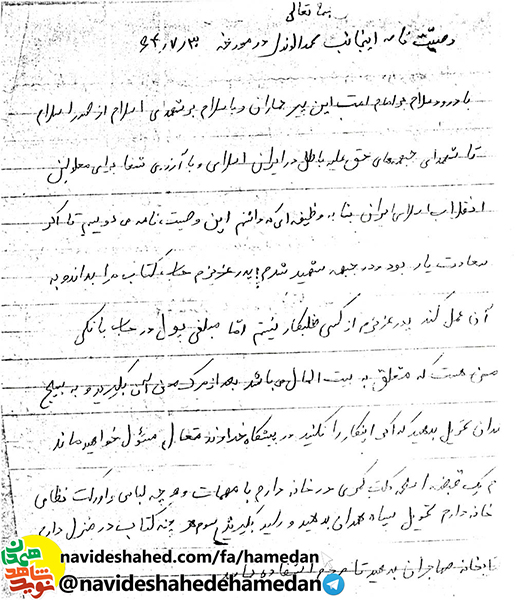 بسمه تعالی
وصیت نامه اینجانب محمد الوندی در مورخه ۶۴/۷/۳۰
با درود و سلام بر امام امت این پیر جماران و با سلام بر شهدای اسلام از صدر اسلام
تا شهدای جبهه‌های حق علیه باطل در ایران اسلامی و با آرزوی شفا برای معلولین
انقلاب اسلامی ایران بنا به وظیفه‌ای که دانم این وصیت نامه می نویسم تا اگر
سعادت یار بود و در جبهه شهید شدم پدر عزیزم حساب کتاب مرا بداند و به
آن عمل کند پدر عزیزم از کسی طلبکار نیستم اما مبلغی پول در حساب بانکی
من هست که متعلق به بیت المال می باشد بعد از مرگ من آن بگیرید و به بسیج
تحویل بدهید که اگر اینکار را نکنید در پیشگاه خداوند متعال مسئول خواهید ماند
یک قبضه اسلحه کلت کمری در خانه دارم با مهمات و هر چه لباس و ادوات نظامی
خانه دارم تحویل سپاه همدان بدهید و رسید بگیرید سوم هر چه کتاب در منزل دارم
بدهید تا مردم استفاده
navideshahed.com/fa/hamedan
@navideshahedehamedan
نوید شاهد همدان